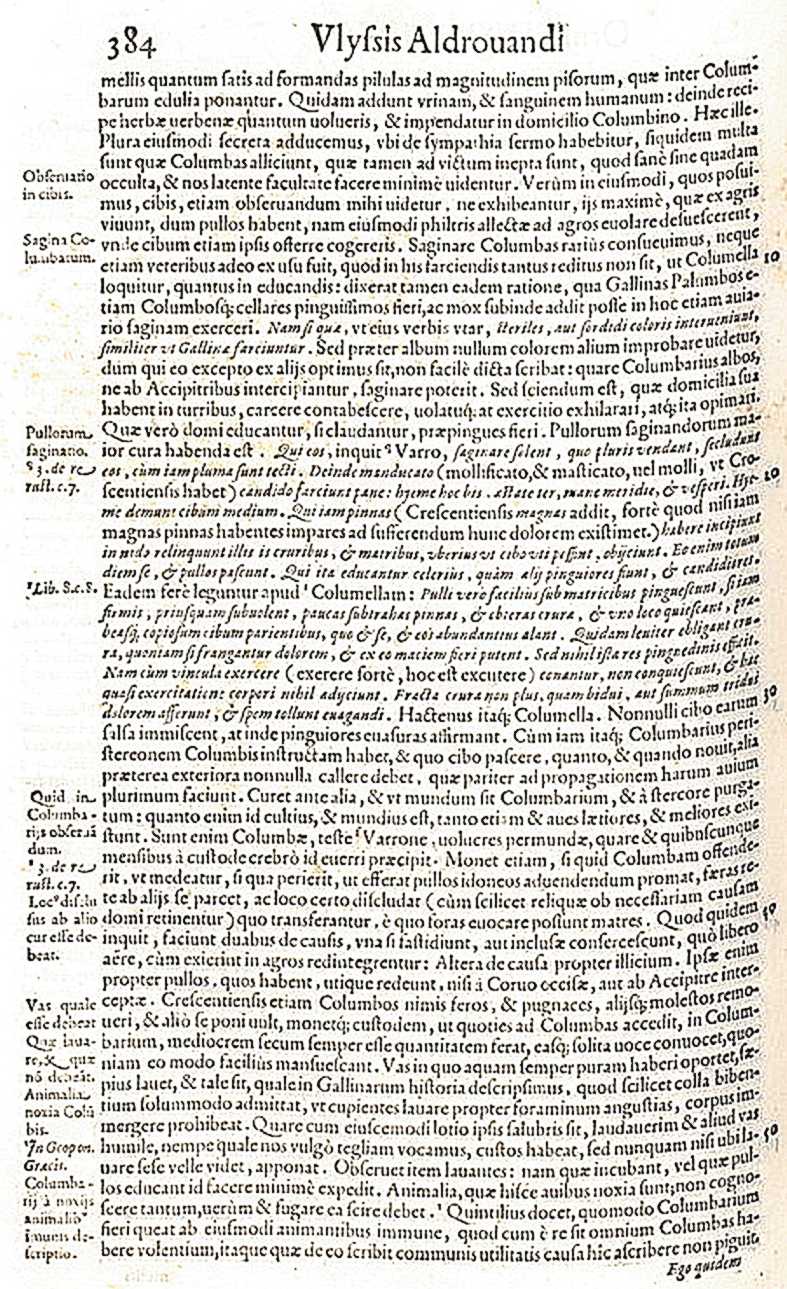 384 Vlyſsis Aldrouandi
mellis quantum ſatis ad formandas pilulas ad magnitudinem piſorum, quæ inter Colum-
barum edulia ponantur. Quidam addunt vrinam, & ſanguinem humanum: deinde reci-
pe herbæ uerbenæ quantum uolueris, & impendatur in domicilio Columbino. Hæc ille.
Plura eiuſmodi ſecreta adducemus, vbi de ſympathia ſermo habebitur, ſiquidem multa
ſunt quæ Columbas alliciunt, quæ tamen ad victum inepta ſunt, quod ſanè ſine quadam
Obſeruatio
in cibis.
occulta, & nos latente facultate facere minimè uidentur. Verùm in eiuſmodi, quos poſui-
mus, cibis, etiam obſeruandum mihi uidetur, ne exhibeantur, ijs maximè, quæ ex agris
viuunt, dum pullos habent, nam eiuſmodi philtris allectæ ad agros euolare deſueſcerent,
Sagina Co-
lumbarum.
vnde cibum etiam ipſis offerre cogereris. Saginare Columbas rariùs conſueuimus, neque
etiam veteribus adeo ex uſu fuit, quod in his farciendis tantus reditus non ſit, ut Columella 10
loquitur, quantus in educandis: dixerat tamen eadem ratione, qua Gallinas Palumbos e-
tiam Columboſq; cellares pinguiſſimos fieri, ac mox ſubinde addit poſſe in hoc etiam auia-
rio ſaginam exerceri. Nam ſi quæ, vt eius verbis vtar, ſteriles, aut ſordidi coloris interueniunt,
ſimiliter vt Gallinæ farciuntur. Sed præter album nullum colorem alium improbare uidetur,
dum qui eo excepto ex alijs optimus ſit, non facilè dicta ſcribat: quare Columbarius albos,
ne ab Accipitribus intercipiantur, ſaginare poterit. Sed ſciendum eſt, quæ domicilia ſua
habent in turribus, carcere contabeſcere, uolatuq; at exercitio exhilarari, atq; ita opimari.
Pullorum
ſaginatio.
ˢ 3. de re
ruſt. c. 7.
Quæ verò domi educantur, ſi claudantur, præpingues fieri. Pullorum ſaginandorum ma-
ior cura habenda eſt. Qui eos, inquit ˢ Varro, ſaginare ſolent, quo pluris vendant, ſecludunt
eos, cùm iam pluma ſunt tecti. Deinde manducato (mollificato, & maſticato, uel molli, vt Cro-
ſcentienſis habet) candido farciunt pane: hyeme hoc bis, æſtate ter, mane meridie, & veſperi. Hye- 20
me demunt cibum medium. Qui iam pinnas (Creſcentienſis magnas addit, fortè quod niſi iam
magnas pinnas habentes impares ad ſufferendum hunc dolorem exiſtimet.) habere incipiunt
in nido relinquunt illeſis cruribus, & matribus, vberius vt cibo vti poſſint, obijciunt. Eo enim totum
diem ſe, & pullos paſcunt. Qui ita educantur celerius, quàm alij pinguiores fiunt, & candidiores.
ᵗ Lib. 8. c. 8.
Eadem ferè leguntur apud ᵗ Columellam: Pulli verò facilius ſub matricibus pingueſcunt, ſi iam
firmis, priuſquam ſubuolent, paucas ſubtrahas pinnas, & obteras crura, & vno loco quieſcant, præ-
beaſq; copioſum cibum parientibus, quo & ſe, & eos abundantius alant. Quidam leuiter obligant cru-
ra, quoniam ſi frangantur dolorem, & ex eo maciem fieri putent. Sed nihil iſta res pinguedinis efficit.
Nam cùm vincula exercere (exerere fortè, hoc eſt excutere) conantur, non conquieſcunt, & hac
quaſi exercitatione corpori nihil adijciunt. Fracta crura non plus, quam bidui, aut ſummum tridui
dolorem afferunt, & ſpem tollunt euagandi. Hactenus itaq; Columella. Nonnulli cibo earum 30
ſalſa immiſcent, at inde pinguiores euaſuras affirmant. Cùm iam itaq; Columbarius peri-
ſtereonem Columbis inſtructam habet, & quo cibo paſcere, quanto, & quando nouit, alia
præterea exteriora nonnulla callere debet, quæ pariter ad propagationem harum auium
Quid in
Columba-
rijs obſeruã
dum.
plurimum faciunt. Curet ante alia, & vt mundum ſit Columbarium, & à ſtercore purga-
tum: quanto enim id cultius, & mundius eſt, tanto etiam & aues lætiores, & meliores exi-
ſtunt. Sunt enim Columbæ, teſte ᶠ Varrone, uolucres permundæ, quare & quibuſcunque
ᶠ 3. de re
ruſt. c. 7.
menſibus à cuſtode crebrò id euerri præcipit. Monet etiam, ſi quid Columbam offende-
rit, vt medeatur, ſi qua perierit, ut efferat pullos idoneos aduendendum promat, fœtas re-
Locꝰ diſclu
ſus ab alio
cur eſſe de-
beat.
te ab alijs ſe parcet, ac loco certo diſcludat (cùm ſcilicet reliquæ ob neceſſariam cauſam
domi retinentur) quo transferantur, è quo foras euocare poſſunt matres. Quod quidem 40
inquit, faciunt duabus de cauſis, vna ſi faſtidiunt, aut incluſæ conſerceſcunt, quò libero
aere, cùm exierint in agros redintegrentur: Altera de cauſa propter illicium. Ipſæ enim
propter pullos, quos habent, utique redeunt, niſi à Coruo occiſæ, aut ab Accipitre inter-
Vas quale
eſſe debeat
Quæ laua-
re, & quæ
nõ debeãt.
ceptæ. Creſcentienſis etiam Columbos nimis feros, & pugnaces, alijſq; moleſtos remo-
ueri, & aliò ſe poni uult, monetq; cuſtodem, ut quoties ad Columbas accedit, in Colum-
barium, mediocrem ſecum ſemper eſſe quantitatem ferat, eaſq; ſolita uoce conuocet, quo-
niam eo modo faciliùs manſueſcant. Vas in quo aquam ſemper puram haberi oportet, ſæ-
Animalia
noxia Colũ
bis.
pius lauet, & tale ſit, quale in Gallinarum hiſtoria deſcripſimus, quod ſcilicet colla biben-
tium ſolummodo admittat, vt cupientes lauare propter foraminum anguſtias, corpus im-
mergere prohibeat. Quare cum eiuſcemodi lotio ipſis ſalubris ſit, laudauerim & aliud vas 50
ᵗ In Geopon.
Græcis.
humile, nempe quale nos vulgò tegliam vocamus, cuſtos habeat, ſed nunquam niſi ubi la-
uare ſeſe velle videt, apponat. Obſeruet item lauantes: nam quæ incubant, vel quæ pul-
Columba-
rij à noxijs
animalibꝰ
imunis de-
ſcriptio.
los educant id facere minimè expedit. Animalia, quæ hiſce auibus noxia ſunt, non cogno-
ſcere tantum, uerùm & fugare ea ſcire debet. ᵗ Quintilius docet, quomodo Columbarium
fieri queat ab eiuſmodi animantibus immune, quod cum è re ſit omnium Columbas ha-
bere volentium, itaque quæ de eo ſcribit communis utilitatis cauſa hic aſcribere non piguit.
Ego quidem